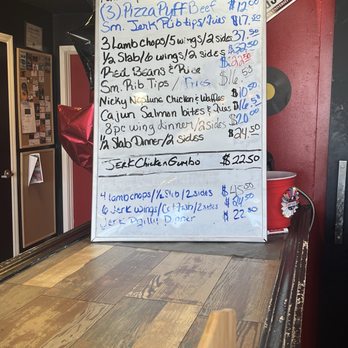 (3) Pizza Puff Beef $12.00
Sm. Jerk Rib tips/Fries $17.50
3 Lamb chops/5 wings/2 sides 37.50
1/2 Slab/6 wings/2 sides $32.50
Red Beans & Rice
Sm. Rib Tips / Fries $16.
Nicky Neptune Chicken & Waffles $10.50
Cajun Salmon bites & Fries
8pc wing dinner/2 sides $20.00
1/2 Slab Dinner/2 sides $24.50
Jerk Chicken Gumbo $22.50
4 lamb chops/1/2 Slab/2 sides $45.00
6 Jerk wings/ /2 sides
Jerk Dinner $22.50